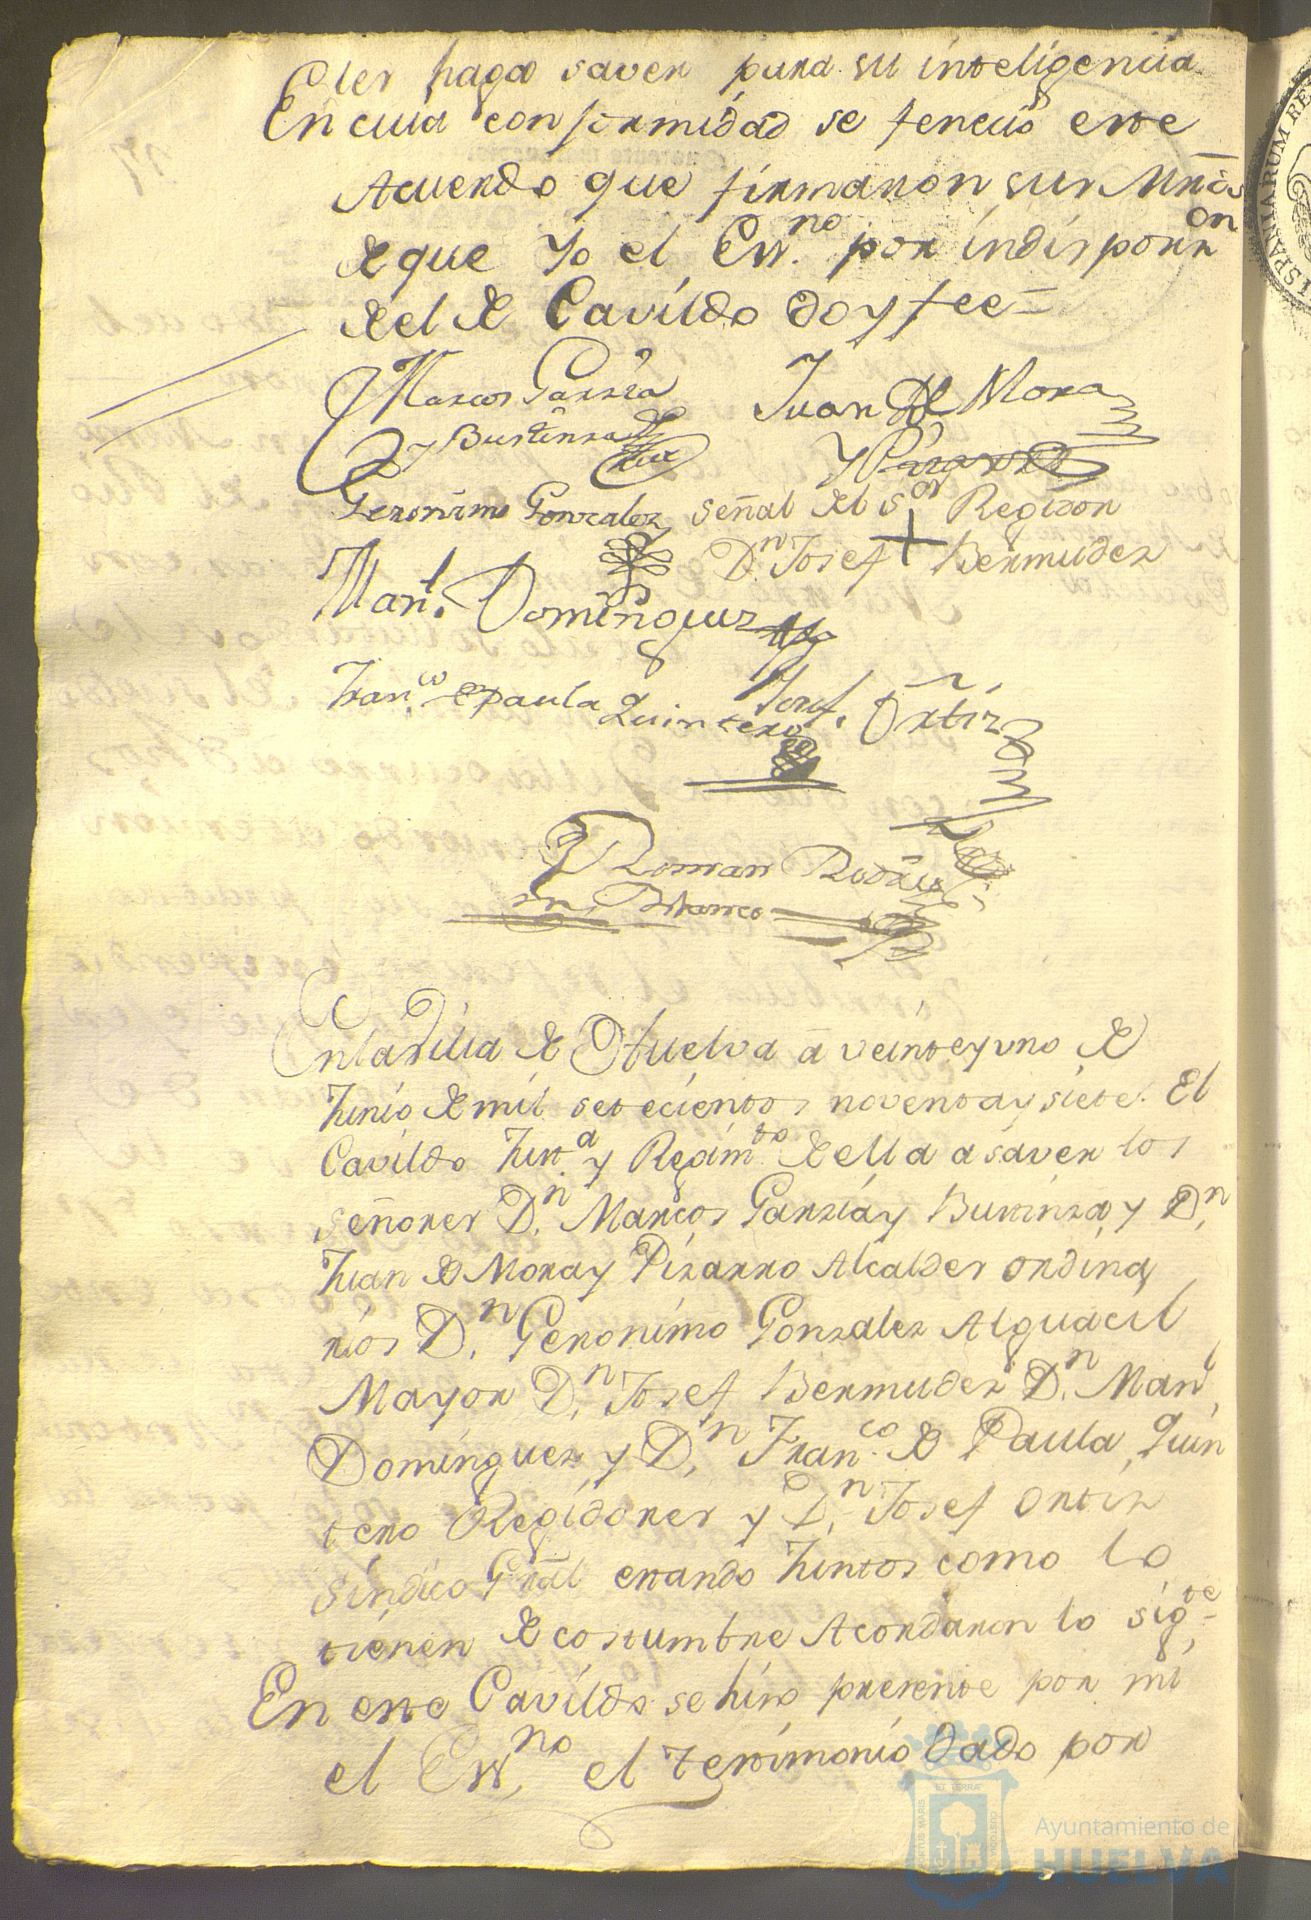 les haga saver para su inteligencia
En cuia conformidad se fenecio este
Acuerdo que firmaron sus Mrds
de que Yo el Essno. por indisposson
del de Cavildo doy fee =
Marcos Garzia
y Bustinza
Juan de Mora
y Pizarro
Geronimo Gonzalez
señal del sor Regidor
Dn Josef + Bermudez
Manl. Dominguez
Franco de Paula Quintero
Josef. Ortiz
Roman Rodrig
Blanco
En la Villa de Huelva a veinte y uno de
Junio de mil setecientos noventa y siete. El
Cavildo Justa. y Regimto de ella a saver los
señores Dn. Marcos Garzia y Bustinza y Dn.
Juan de Mora y Pizarro Alcaldes ordina
rios Dn. Geronimo Gonzalez Alguacil
Mayor Dn. Josef Bermudez Dn. Manl
Dominguez y Dn. Franco. de Paula Quin
tero Regidores y Dn. Josef Ortiz
Sindico Gral estando Juntos como lo
tienen de costumbre Acordaron lo sigte.
En este Cavildo se hizo presente por mi
el Essno el testimonio dado por
PORTUS MARIS
ET TERRAE
CUSTODIA
Ayuntamiento de
HUELVA
ISPANIARUM RE